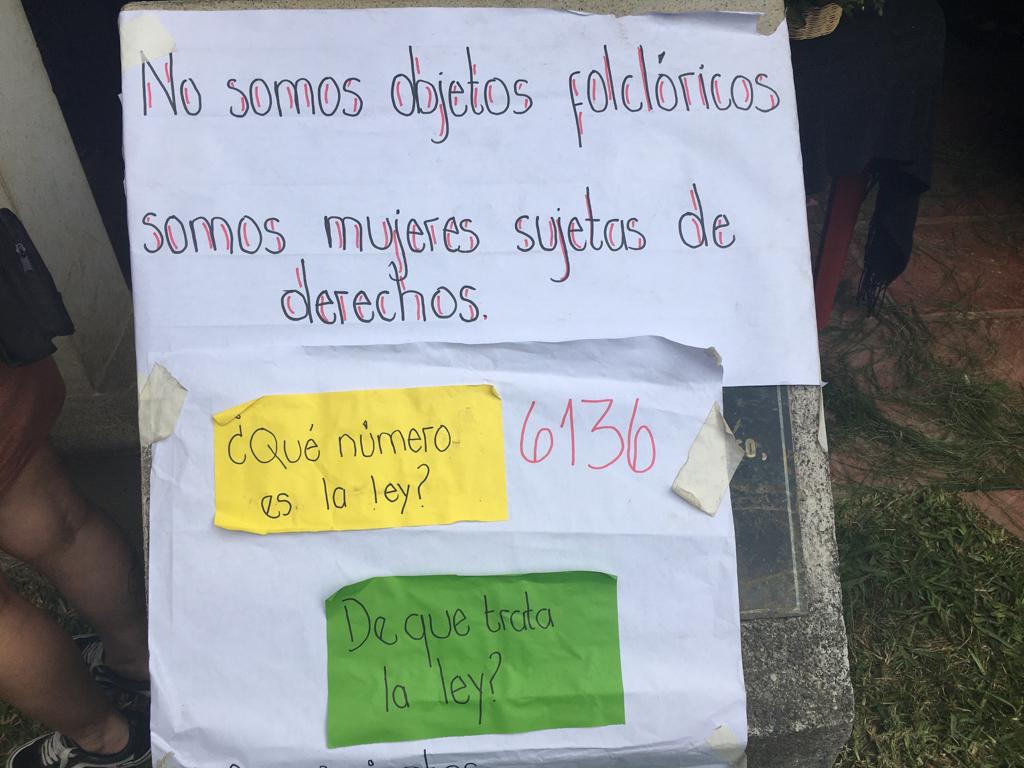 No somos objetos folclóricos
somos mujeres sujetas de
derechos.
¿Qué número
es la ley?
6136
De que trata
la ley?